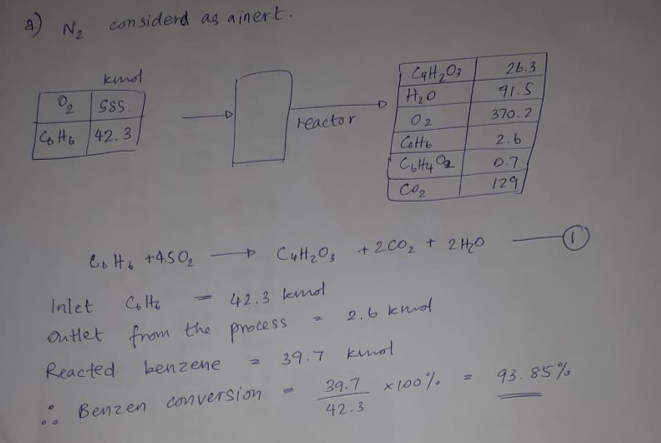 a) N2 considerd as ainert.
kmol
O2 585.
C6H6 42.3
reactor
C4H2O3 26.3
H2O 91.5
O2 370.2
C6H6 2.6
C6H4O2 0.7
CO2 129
C6H6 + 4.5O2 → C4H2O3 + 2CO2 + 2H2O —— 1
Inlet C6H6 = 42.3 kmol
outlet from the process = 2.6 kmol
Reacted benzene = 39.7 kmol
∴ Benzen conversion = 39.7/42.3 × 100% = 93.85%